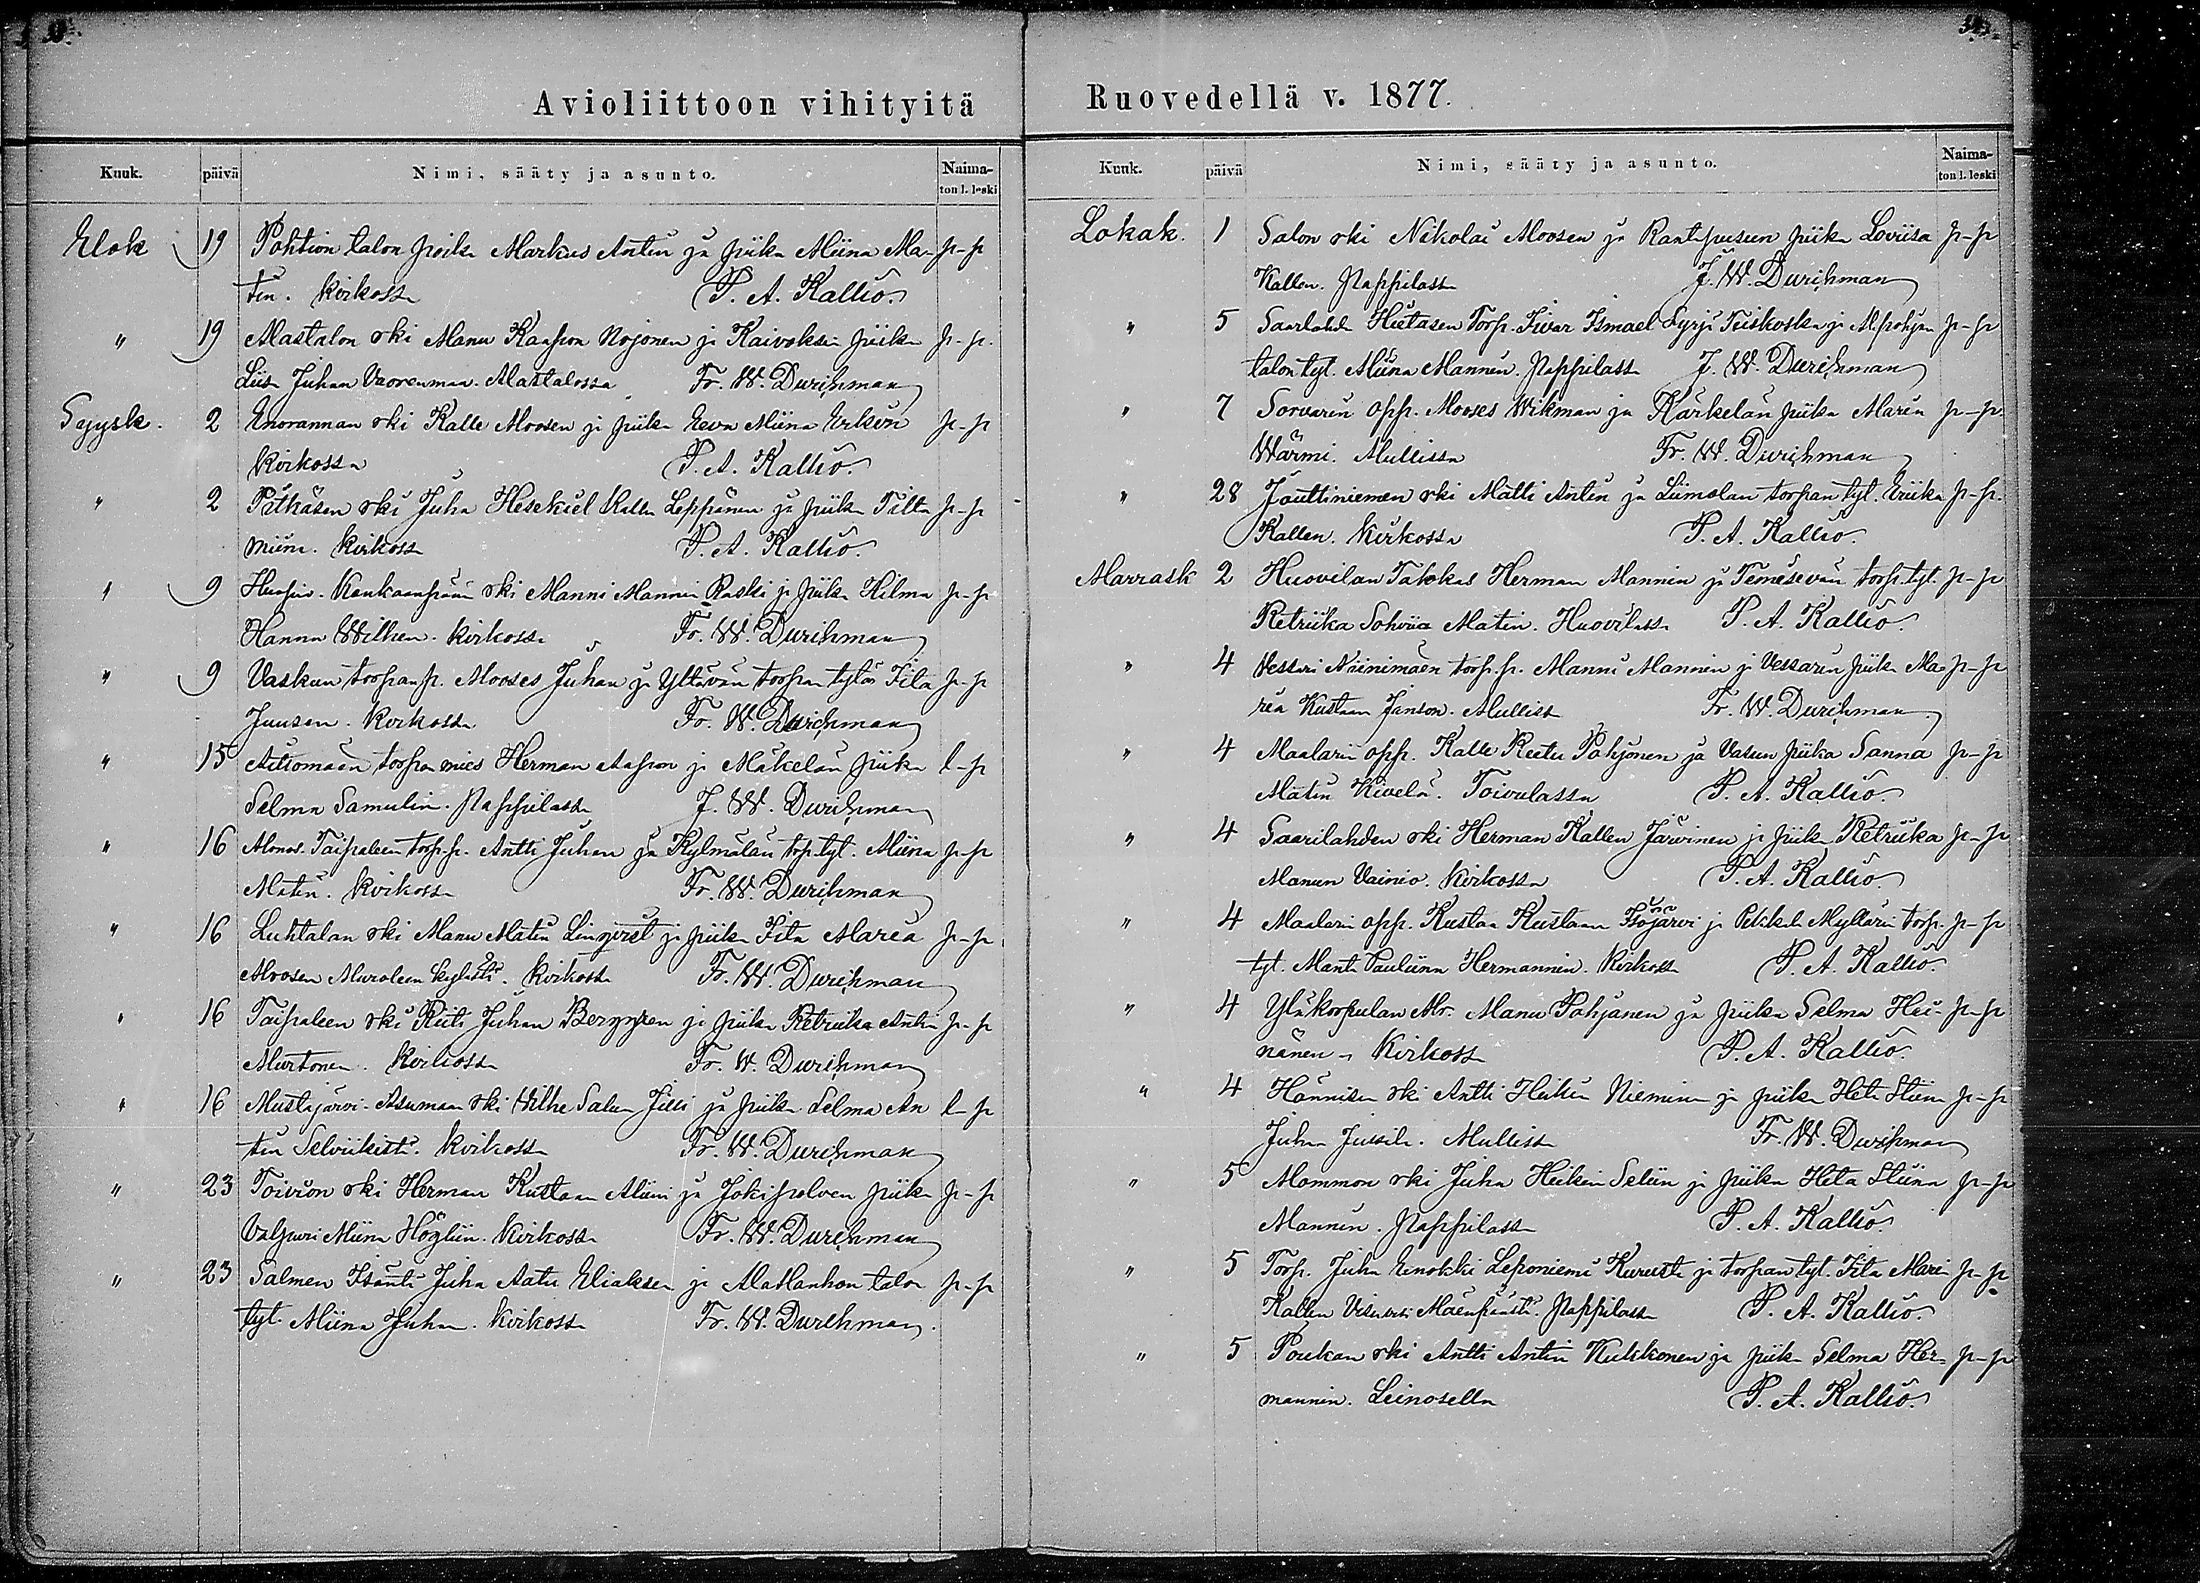 Avioliittoon vihityitä
Kuuk. päivä Nimi, sääty ja asunto. Naima-
ton l. leski
Elok 19 Pohtion talon poika Markus Antin ja piika Miina Ma- p-p
tin. Kirkossa P. A. Kallio.
" 19 Mastalon rki Manu Kaapon Nojonen ja Kaivoksen piika p-p.
Liisa Juhan Vuorenmaa. Mastalossa Fr. W. Durchman
Syysk. 2 Enorannan rki Kalle Moosen ja piika Eeva Miina Erkin p-p
Kirkossa P. A. Kallio.
" 2 Pitkäsen rki Juha Hesekiel Kallen Leppänen ja piika Tilta p-p
Kirkossa P. A. Kallio.
" 9 Kankaanpään rki Manni Mannin Raski ja piika Hilma p-p
Hanna Wilhen. Kirkossa Fr. W. Durchman
" 9 Vaskun torpan p. Mooses Juhan ja torpan tytär Fita p-p
Juusen. Kirkossa Fr. W. Durchman
" 15 torpan mies Herman Aapon ja Mäkelän piika l-p
Selma Samulin. Pappilassa J. W. Durchman
" 16 Taipaleen torp. p. Antti Juhan ja Kylmälän torp. tyt. Miina p-p
Matin. Kirkossa Fr. W. Durchman
" 16 Luhtalan rki Manu Matin Linqvist ja piika Fita Maria p-p
Moosen Muroleen kylästä. Kirkossa Fr. W. Durchman
" 16 Taipaleen rki Juhan ja piika Retriika Antin p-p
Murtonen. Kirkossa Fr. W. Durchman
" 16 Mustajärvi Asuman rki Wilhe ja piika Selma An l-p
tin Kirkossa Fr. W. Durchman
" 23 Toivion rki Herman Kustaan ja Jokipolven piika p-p
Valpuri Miina Höglin. Kirkossa Fr. W. Durchman
" 23 Salmen Isäntä Juha Aatu Eliaksen ja talon p-p
tyt. Miina Juhan. Kirkossa Fr. W. Durchman.
Ruovedellä v. 1877.
Kuuk. päivä Nimi, sääty ja asunto. Naima-
ton l. leski
Lokak. 1 Salon rki Nikolai Moosen ja piika Loviisa p-p
Kallen. Pappilassa J. W. Durchman
" 5 Torp. Iivar Ismael Syrjä Teiskoska ja p-p
talon tyt. Miina Mannin. Pappilassa J. W. Durchman
" 7 Sorvarin opp. Mooses Wikman ja Kärkelän piika Maria p-p.
Wärmi. Mullissa Fr. W. Durchman
" 28 Jauttiniemen rki Matti Antin ja Liimolan torpan tyt. Eriika p-p.
Kallen. Kirkossa P. A. Kallio.
Marrask 2 Huovilan Talokas Herman Mannin ja torp. tyt. p-p
Retriika Sohvia Matin. Huovilassa P. A. Kallio.
" 4 Vessari Niinimäen torp. p. Manni Mannin ja Vessarin piika Ma- p-p
ria Kustaan Janson. Mullissa Fr. W. Durchman.
" 4 Maalarin opp. Kalle Reetu Pohjonen ja piika Sanna p-p
Matin Kivelä. Toivolassa P. A. Kallio.
" 4 Saarilahden rki Herman Kallen Järvinen ja piika Retriika p-p
Manun Vainio. Kirkossa P. A. Kallio.
" 4 Maalarin opp. Kustaa Kustaan Isojärvi ja Pekkala Myllärin torp. p-p
tyt. Manta Pauliina Hermannin. Kirkossa P. A. Kallio.
" 4 Yläkorpulan Mr. Manu Pohjanen ja piika Selma Hei- p-p
nänen. Kirkossa P. A. Kallio.
" 4 Hännisen rki Antti Heikin Nieminen ja piika Heta Stiina p-p
Juhan Jussila. Mullissa Fr. W. Durchman
" 5 Mommon rki Juha Heikin Selin ja piika Heta Stiina p-p
Mannin. Pappilassa P. A. Kallio.
" 5 Torp. Juha Enokki Leponiemi Kurusta ja torpan tyt. Fita Maria p-p
Kallen Pappilassa P. A. Kallio.
" 5 Poukan rki Antti Antin Kukkonen ja piika Selma Her- p-p
mannin. Leinosella P. A. Kallio.